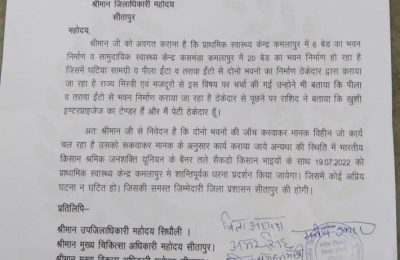 श्रीमान जिलाधिकारी महोदय
सीतापुर
महोदय,
श्रीमान जी को अवगत कराना है कि प्राथमिक स्वास्थ्य केन्द्र कमलापुर में 6 बेड का भवन
निर्माण व सामुदायिक स्वास्थ्य केन्द्र कसमंडा में 20 बेड का भवन निर्माण हो रहा है
जिसमें घटिया सामग्री व पीला ईंटा व तरावा ईंटो से दोनो भवनो का निर्माण ठेकेदार द्वारा कराया
जा रहा है राज्य मिस्त्री एवं मजदूरों से इस विषय पर चर्चा की गई उन्होने भी बताया कि पीला
व तरावा ईंटो से भवन निर्माण कराया जा रहा है ठेकेदार से पूछने पर राशिद ने बताया कि खुशी
इण्टरप्राइजेज का टेण्डर हैं और मैं पेटी ठेकेदार हूँ।
अतः श्रीमान जी से निवेदन है कि दोनो भवनों की जाँच करवाकर मानक विहीन जो कार्य
चल रहा है उसको रूकवाकर मानक के अनुसार कार्य कराया जाये अन्यथा की स्थिति में भारतीय
किसान श्रमिक जनशक्ति यूनियन के बैनर तले सैकडो किसान भाइयों के साथ 19.07.2022 को
प्राथमिक स्वास्थ्य केन्द्र कमलापुर मे शान्तिपूर्वक धरना प्रर्दशन किया जायेगा। जिसमें कोई अप्रिय
घटना न घटित हो। जिसकी समस्त जिम्मेदारी जिला प्रशासन सीतापुर की होगी।
प्रतिलिपि–
श्रीमान उपजिलाधिकारी महोदय सिधौली ।
श्रीमान मुख्य चिकित्सा अधिकारी महोदय सीतापुर।
श्रीमान मुख्य विकास अधिकारी महोदय सीतापुर।
जिला अध्यक्ष